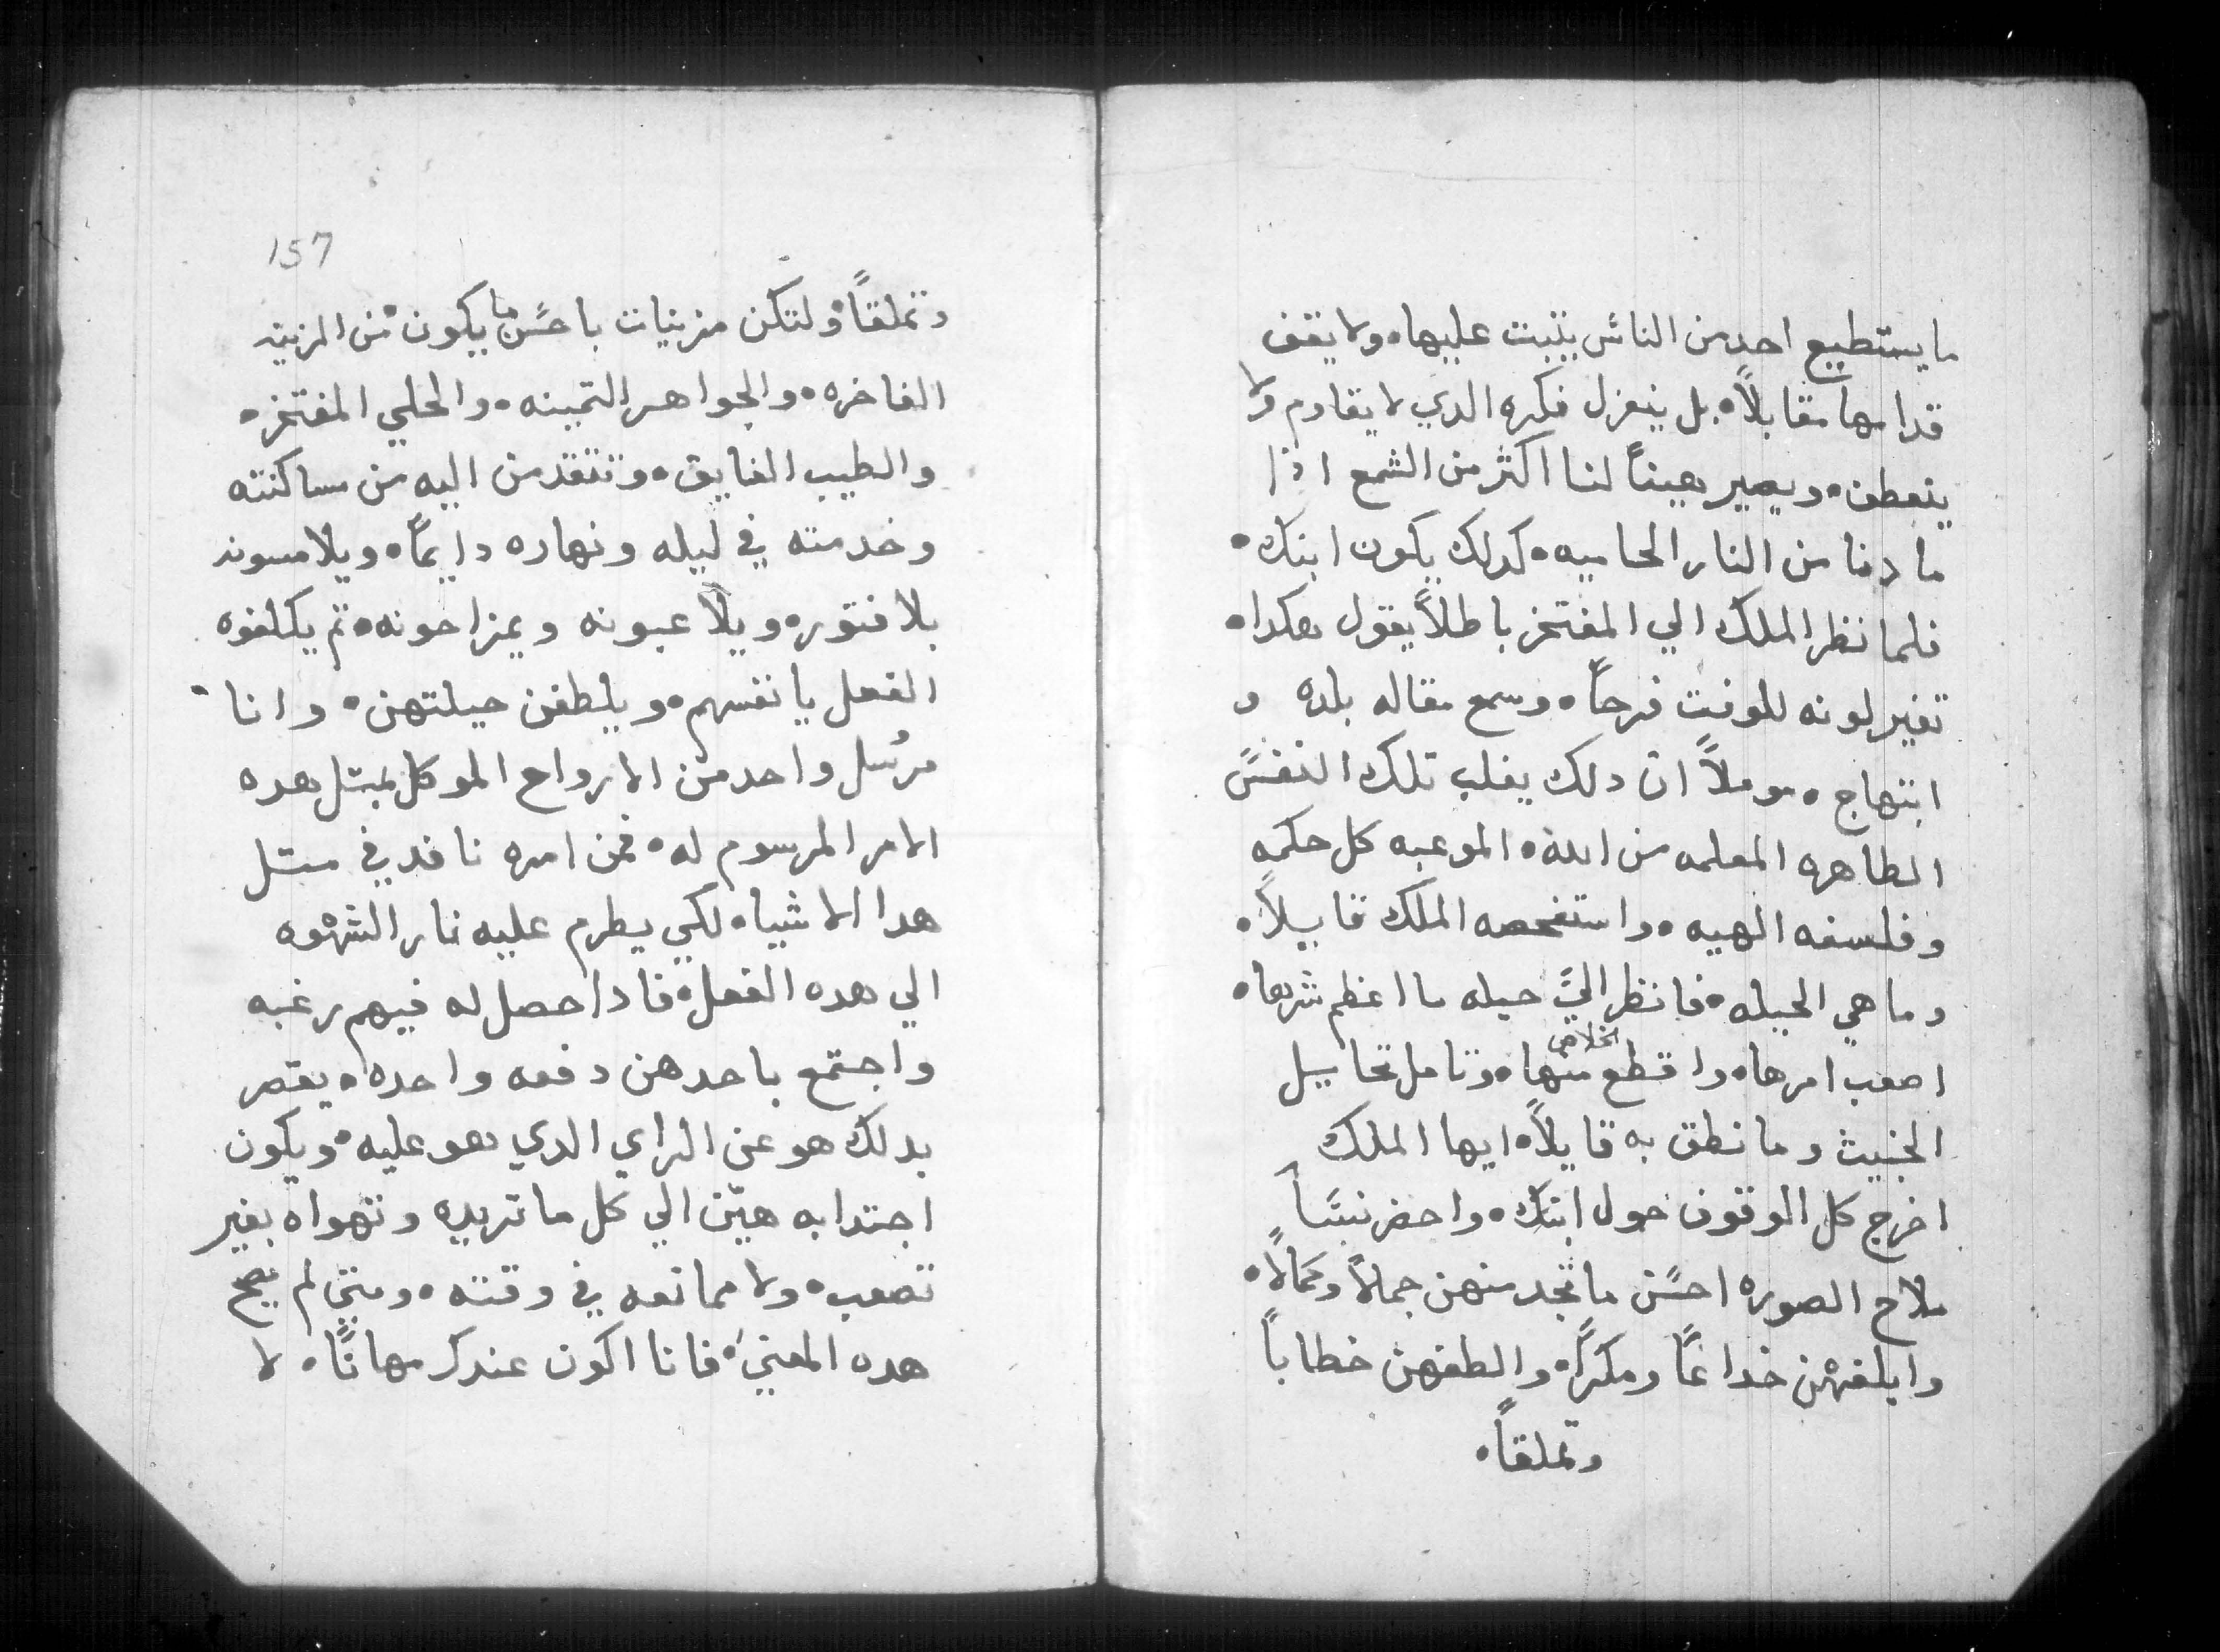 ما يستطيع احد من الناس يتبت عليها ولا يقف
قدامها مقابلاً بل ينعزل فكره الدي لا يقاوم ولا
ينعطف ويصير هيناً لنا اكثر من الشمع اذا
ما دنا من النار الحاميه كدلك يكون ابنك
فلما نظر الملك الي المفتخر باطلاً يقول هكدا
تغير لونه للوقت فرحاً وسمع مقاله بلده و
ابتهاج موملاً ان دلك يغلب تلك النفسً
الطاهره المعلمه من الله الموعبه كل حكمه
وفلسفه الهيه واستفحصه الملك قايلاً
وما هي الحيله فانظر اليً حيله ما اعظم شرها
اصعب امرها واقطع منها الخلاص وتامل تحاييل
الخبيث وما نطق به قايلاً ايها الملك
اخرج كل الوقوف حول ابنك واحضر نسًاً
ملاح الصوره احسًن ما تجد منهن جمالاً وكمالاً
وايلفهن خداعاً ومكراً والطفهن خطاباً
وتملقاً
157
وتملقاً ولتكن مزينات باحسًن ما يكون من الزينه
الفاخره والجواهر التمينه والحلي المفتخره
والطيب الفايق وتتقدمن اليه من ساكنته
وخدمته في ليله ونهاره دايماً ويلامسونه
بلا فتوره ويلاعبونه ويمزاحونه تم يكلفوه
الفعل بانفسهم ويلطفن حيلتهن وانا
مرُسل واحد من الارواح الموكل بمتل هده
الامر المرسوم له فمن امره نافد في متل
هدا الاشياه لكي يطرم عليه نار الشهوه
الي هده الفعل فادا حصل له فيهم رغبه
واجتمع باحدهن دفعه واحده يقصر
بدلك هو عن الراي الدي هو عليه ويكون
اجتدابه هيّن الي كل ما تريده وتهواه بغير
تصعب ولا ممانعه في وقته ومتي لم يصح
هده المعني فانا اكون عندك مهاناً لا